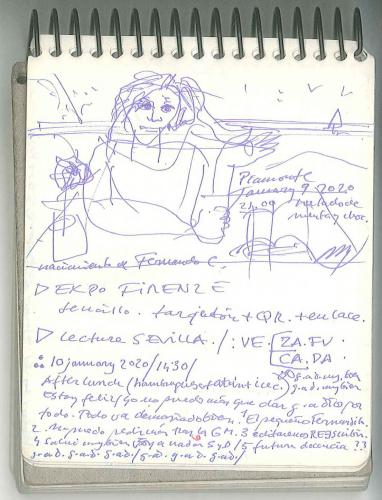 Piamonte
January 9 2020
21,00
nacimiento de Fernando C.
▷ EXPO FIRENZE
sencillo. tarjetón + QR. + enlace.
▷ Lectura SEVILLA. /: VE. ZA. FU.
CA. DA
10 january 2020/14:30/
After lunch (hamburguesa
estoy feliz/go no puedo más que dar g. a dios por
todo. Todo va demasiado bien. 1 El pequeño Fernandito.
2. 3 editaremos
4 Salud muy bien voy a nadar S y D / 5 futura docencia ??
g.a.d. g.a.d. g.a.d/ g.a.d. g.a.d. g.a.d/